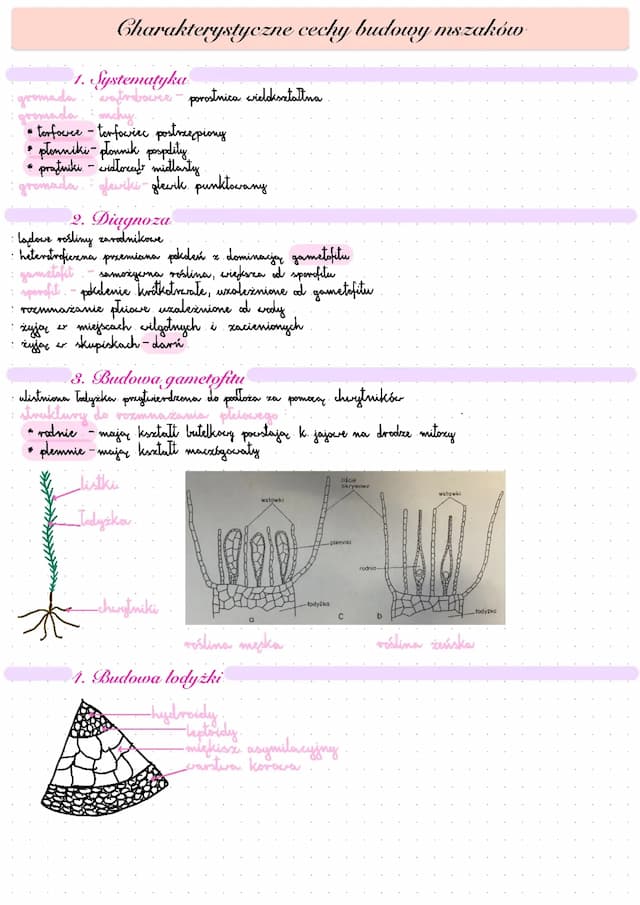 Charakterystyczne cechy budowy mszaków
1. Systematyka
gromada : wątrobowce - porostnica wielokształtna
gromada : mchy
* torfowce - torfowiec postrzępiony
* płonniki - płonnik pospolity
* prątniki - widłoząb miotlasty
gromada : glewiki - glewik punktowany
2. Diagnoza
· lądowe rośliny zarodnikowe
· heterotroficzna przemiana pokoleń z dominacją gametofitu
gametofit - samożywna roślina, większa od sporofitu
sporofit - pokolenie krótkotrwałe, uzależnione od gametofitu
· rozmnażanie płciowe uzależnione od wody
· żyją w miejscach wilgotnych i zacienionych
· żyją w skupiskach - darń
3. Budowa gametofitu
· ulistniona łodyżka przytwierdzona do podłoża za pomocą chwytników
struktury do rozmnażania płciowego
* rodnie - mają kształt butelkowy powstają k. jajowe na drodze mitozy
* plemnie - mają kształt maczugowaty
listki
łodyżka
chwytniki
wstawki
liście okrywowe
wstawki
plemnki
rodnia
łodyżka
łodyżka
a
c
b
roślina męska
roślina żeńska
4. Budowa lodyżki
hydroidy
leptoidy
miękisz asymilacyjny
warstwa korowa